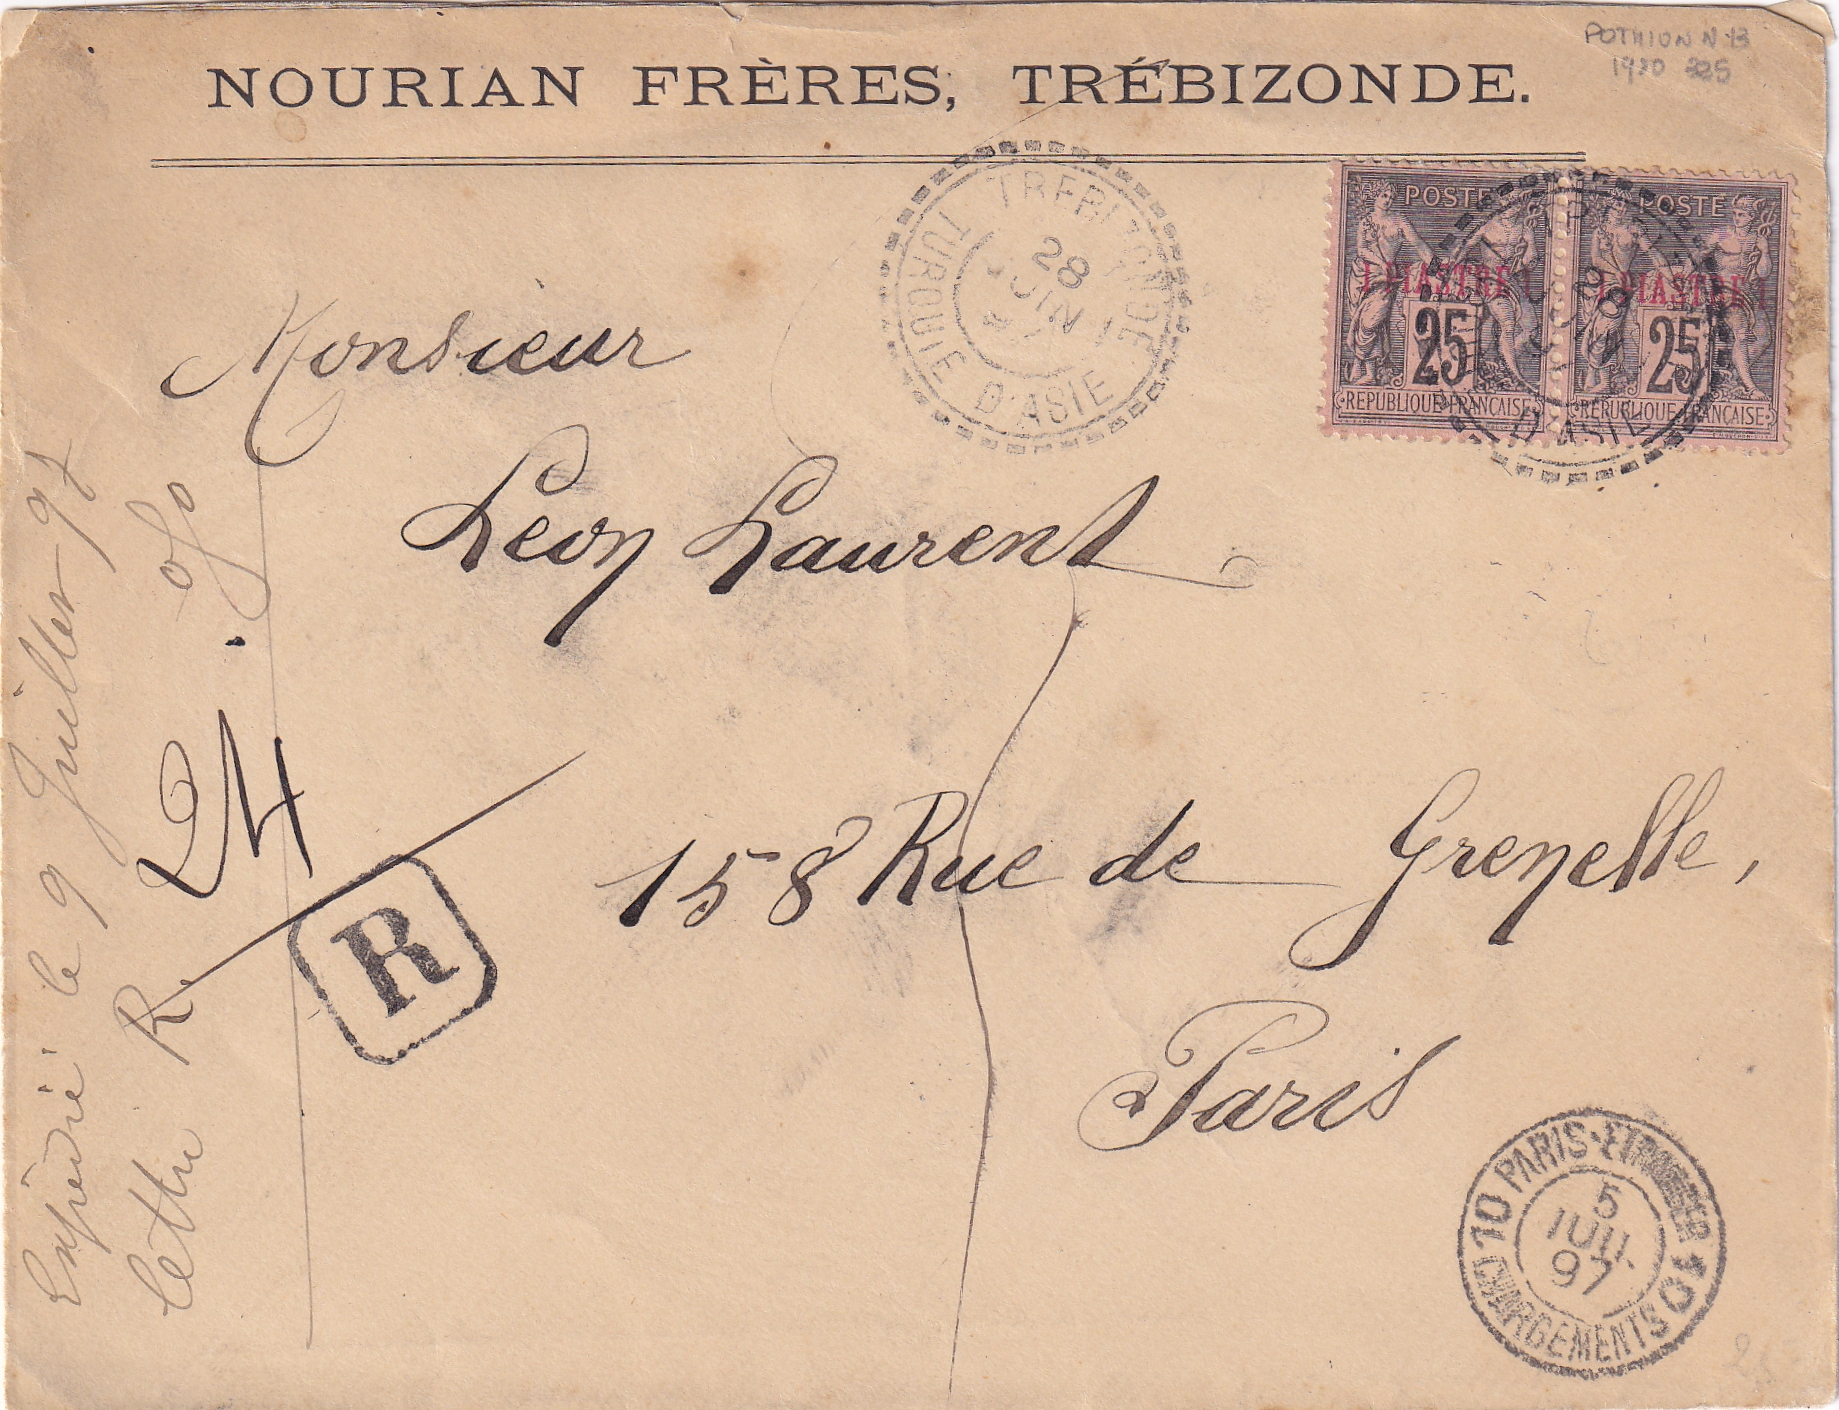 POTHION N 13
1920 325
NOURIAN FRÈRES, TRÉBIZONDE.
TREBIZONDE
TURQUIE D'ASIE
28
JUIN
POSTE
1 PIASTRE 1
25
REPUBLIQUE FRANCAISE
POSTE
1 PIASTRE 1
25
REPUBLIQUE FRANCAISE
D'ASIE
Monsieur
Léon Laurent
158 Rue de Grenelle,
Paris
24
R
le 9 Juillet 97
lettre R.
10 PARIS-ETRANGER 10
CHARGEMENTS
5
JUIL
97